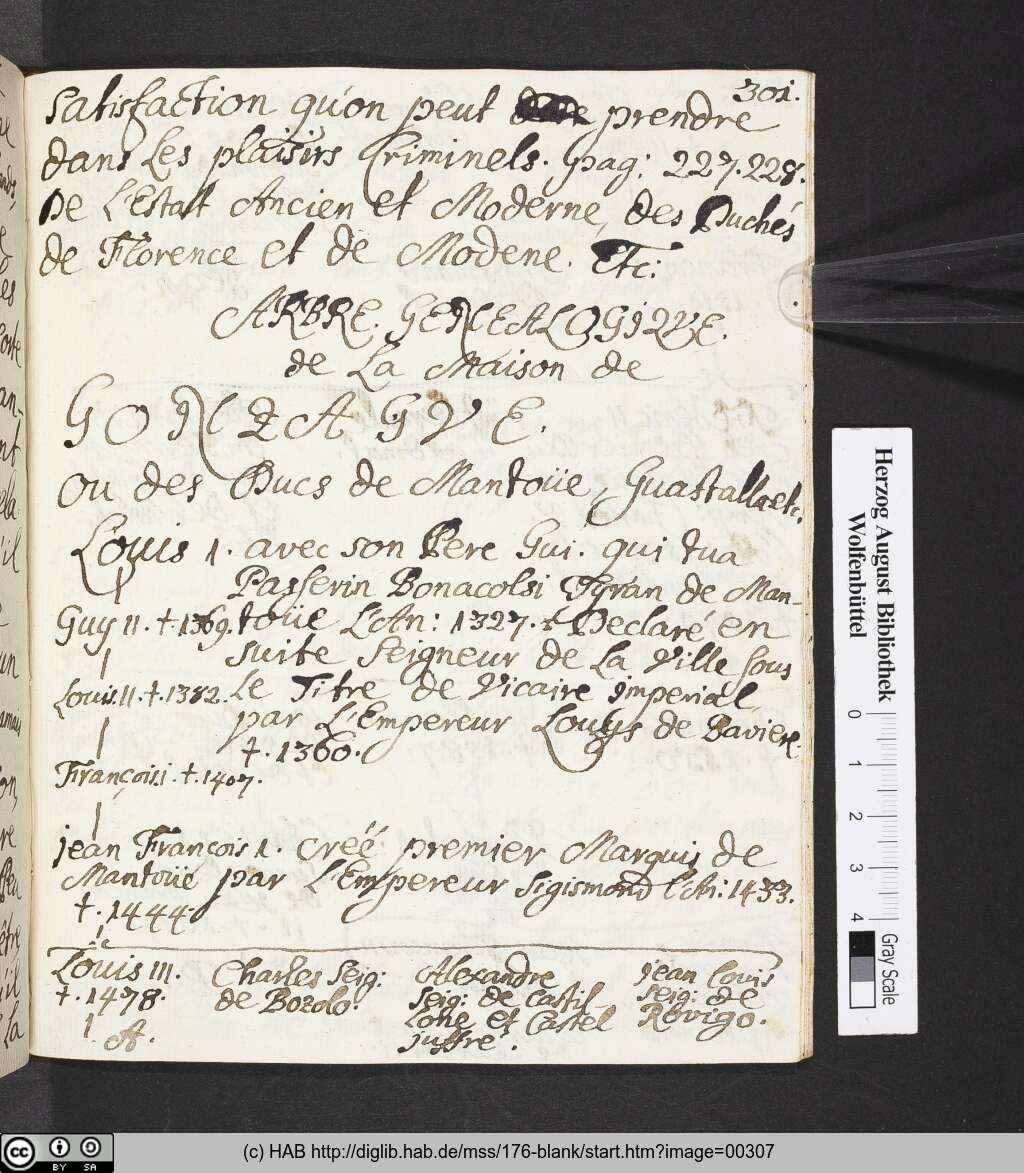 301.
satisfaction qu'on peut prendre
dans Les plaisirs Criminels. pag: 227.228.
De L'Estatt Ancien et Moderne, des Duchés
de Florence et de Modene. Etc:
ARBRE. GENEALOGIQVE.
de La Maison de
GONZAGVE.
ou des Ducs de Mantoüe, Guastalla etc.
Louis 1. avec son Pere Gui. qui tua
Passerin Bonacolsi Tyran de Man-
Guy II. †. 1369. toüe L'An: 1327. & Declaré en
suite Seigneur de La Ville sous
Louis. II. †. 1382. Le Titre de Vicaire Imperial
par L'Empereur Louys de Baviere.
†. 1360.
François. 1. †. 1407.
jean François 1. créé premier Marquis de
Mantoüe par L'Empereur Sigismond l'An: 1433.
†. 1444.
Louis III. Charles Seig: Alexandre jean Louis
†. 1478. de Bozolo. Seig: de Castil seig: de
A. Lone et Castel Rovigo.
juffré.
Herzog August Bibliothek
Wolfenbüttel
0 1 2 3 4 Gray Scale
cc BY SA
(c) HAB http://diglib.hab.de/mss/176-blank/start.htm?image=00307